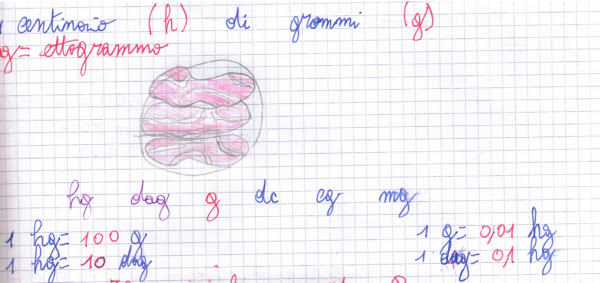 centinaio (h) di grammi (g)
g= ettogrammo
hg dag g dc cg mg
1 hg= 100 g
1 hg= 10 dag
1 g= 0,01 hg
1 dag= 0,1 hg